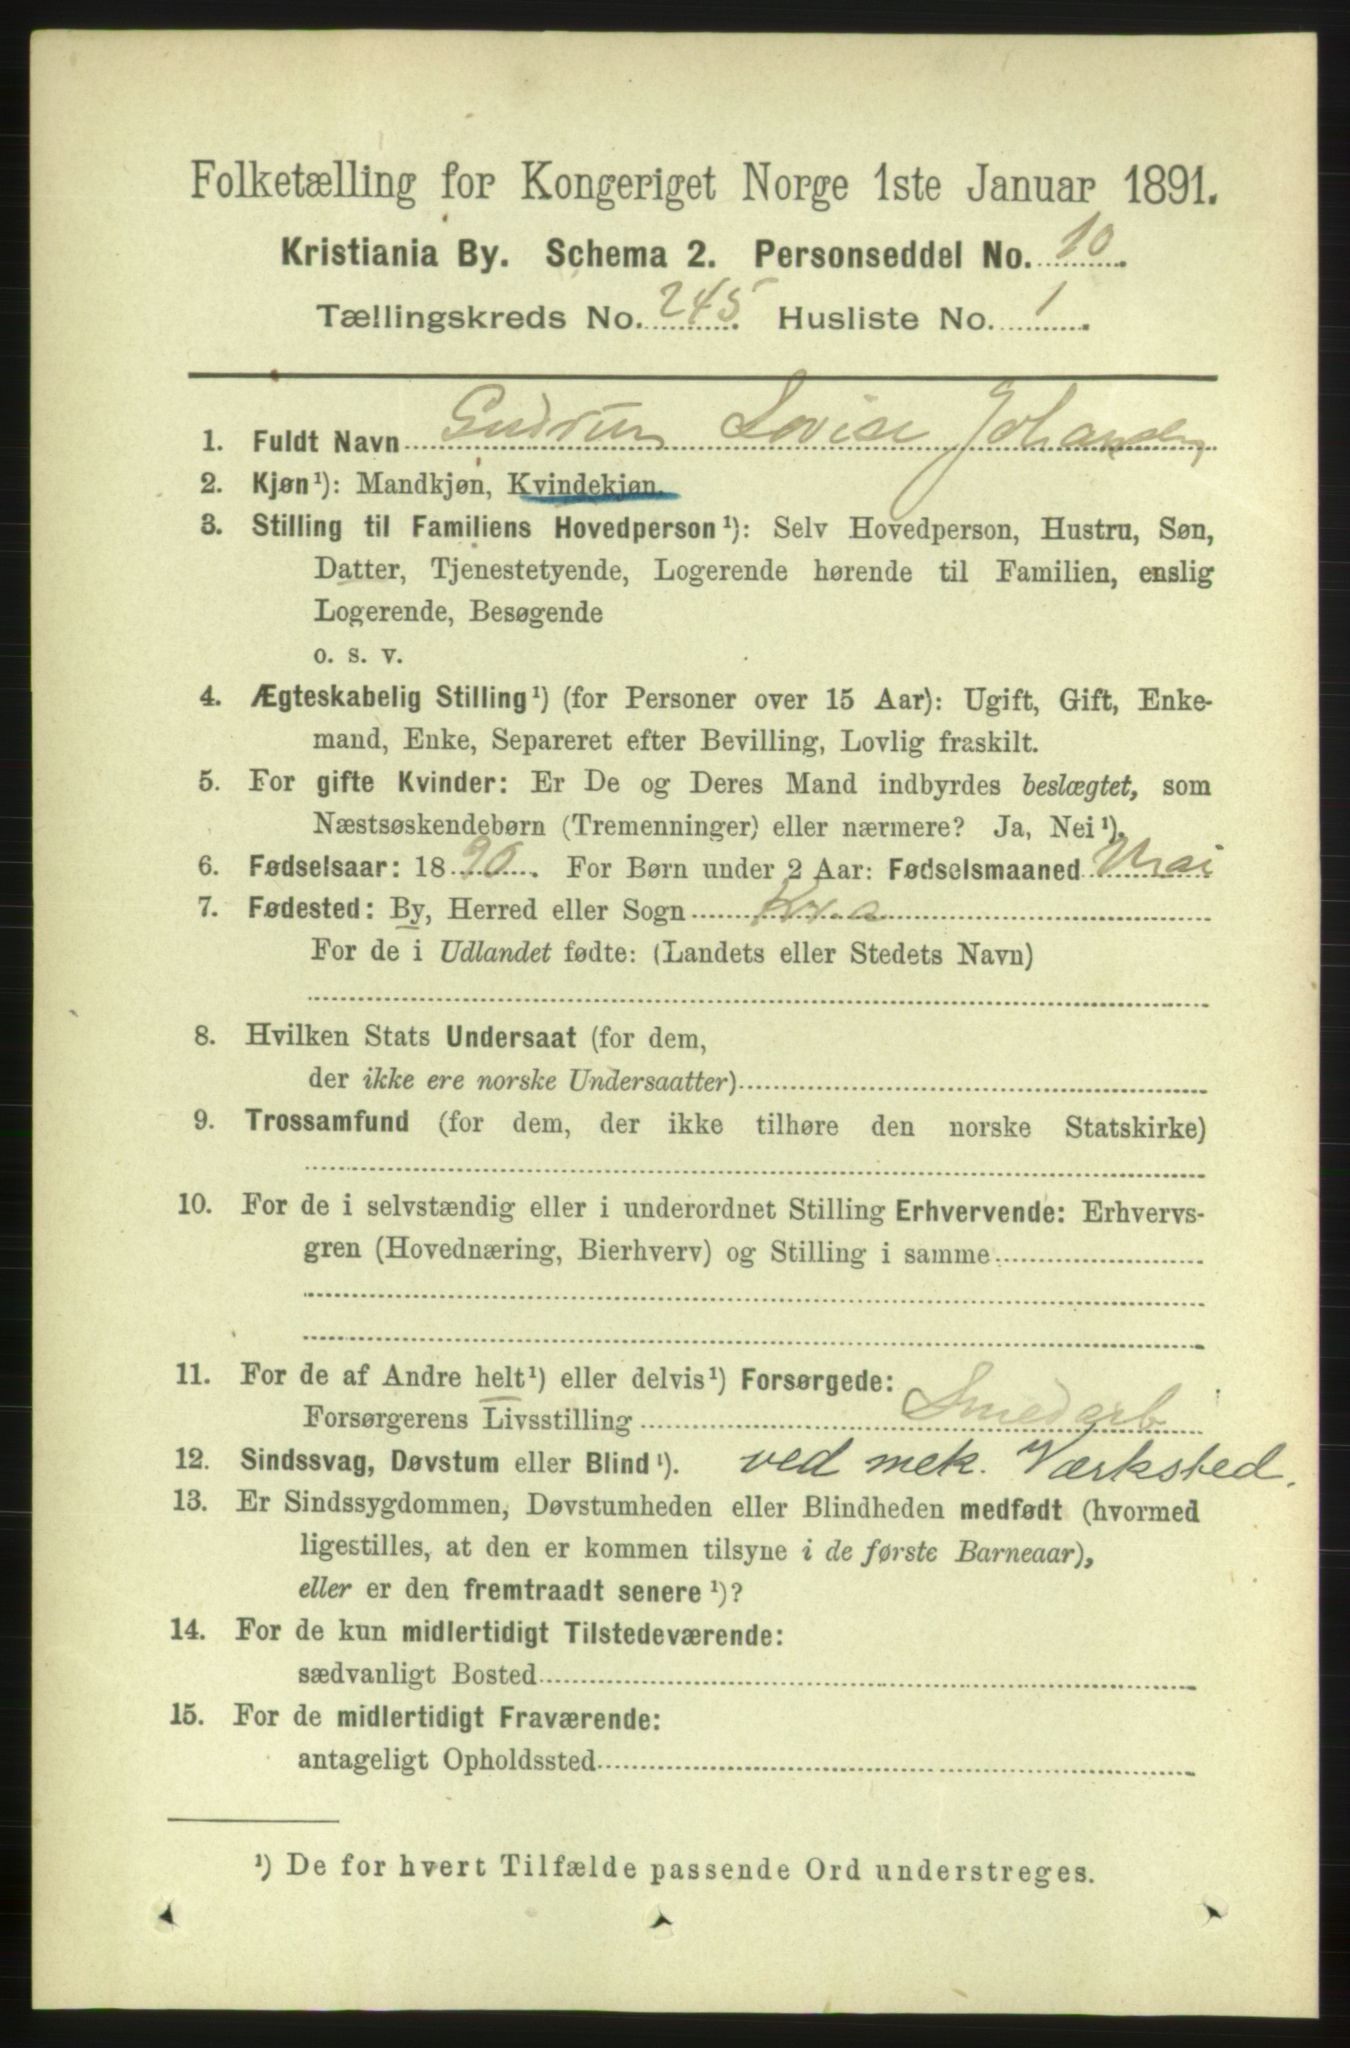 Folketælling for Kongeriget Norge 1ste Januar 1891.
Kristiania By. Schema 2. Personseddel No. 10.
Tællingskreds No. 245. Husliste No. 1.
1. Fuldt Navn Gudrun Lovise Johansen
2. Kjøn¹): Mandkjøn, Kvindekjøn.
3. Stilling til Familiens Hovedperson¹): Selv Hovedperson, Hustru, Søn,
Datter, Tjenestetyende, Logerende hørende til Familien, enslig
Logerende, Besøgende
o. s. v.
4. Ægteskabelig Stilling¹) (for Personer over 15 Aar): Ugift, Gift, Enke-
mand, Enke, Separeret efter Bevilling, Lovlig fraskilt.
5. For gifte Kvinder: Er De og Deres Mand indbyrdes beslægtet, som
Næstsøskendebørn (Tremenninger) eller nærmere? Ja, Nei¹).
6. Fødselsaar: 1890. For Børn under 2 Aar: Fødselsmaaned Mai
7. Fødested: By, Herred eller Sogn Kr.a
For de i Udlandet fødte: (Landets eller Stedets Navn)
8. Hvilken Stats Undersaat (for dem,
der ikke ere norske Undersaatter)
9. Trossamfund (for dem, der ikke tilhøre den norske Statskirke)
10. For de i selvstændig eller i underordnet Stilling Erhvervende: Erhvervs-
gren (Hovednæring, Bierhverv) og Stilling i samme
11. For de af Andre helt¹) eller delvis¹) Forsørgede:
Forsørgerens Livsstilling Smedarb
12. Sindssvag, Døvstum eller Blind¹). ved mek. Værksted.
13. Er Sindssygdommen, Døvstumheden eller Blindheden medfødt (hvormed
ligestilles, at den er kommen tilsyne i de første Barneaar),
eller er den fremtraadt senere¹)?
14. For de kun midlertidigt Tilstedeværende:
sædvanligt Bosted
15. For de midlertidigt Fraværende:
antageligt Opholdssted
¹) De for hvert Tilfælde passende Ord understreges.